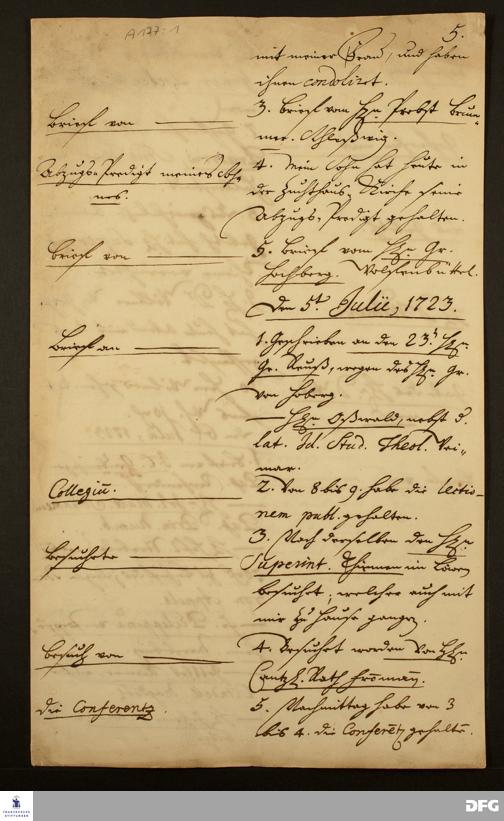 A 177 : 1
5.
mit meiner Frau, und haben
ihnen condolirt.
Briefl von
3. Briefl vom Hn. Probst Brun-
mer. Schleßwig.
Abzugs-Predigt meines Soh-
nes.
4. Mein Sohn hat heute in
der Zuchthaus-Kirche seine
Abzugs-Predigt gehalten.
Briefl von
5. Briefl vom Hn. Gr.
Hochberg. Wolffenbüttel.
Den 5t. Julii, 1723.
Briefl an
1. Geschrieben an den 23. Hn.
Gr. Reuß, wegen des Hn. Gr.
von Hoberg.
Hn. Oßwald, nebst d.
lat. Stud. Theol. Wei-
mar.
Collegiū.
2. Von 8 bis 9. habe die lectio-
nem publ. gehalten.
Besuchte
3. Nach derselben den Hn.
Superint. Thümen im
besucht, welcher auch mit
mir zu Hause gangen.
Besuch von
4. Besucht worden von Hn.
Cantzl. Rath Fromann.
Die Conferentz.
5. Nachmittag habe von 3
bis 4. die Conferētz gehaltē.
FRANCKESCHE
STIFTUNGEN
DFG